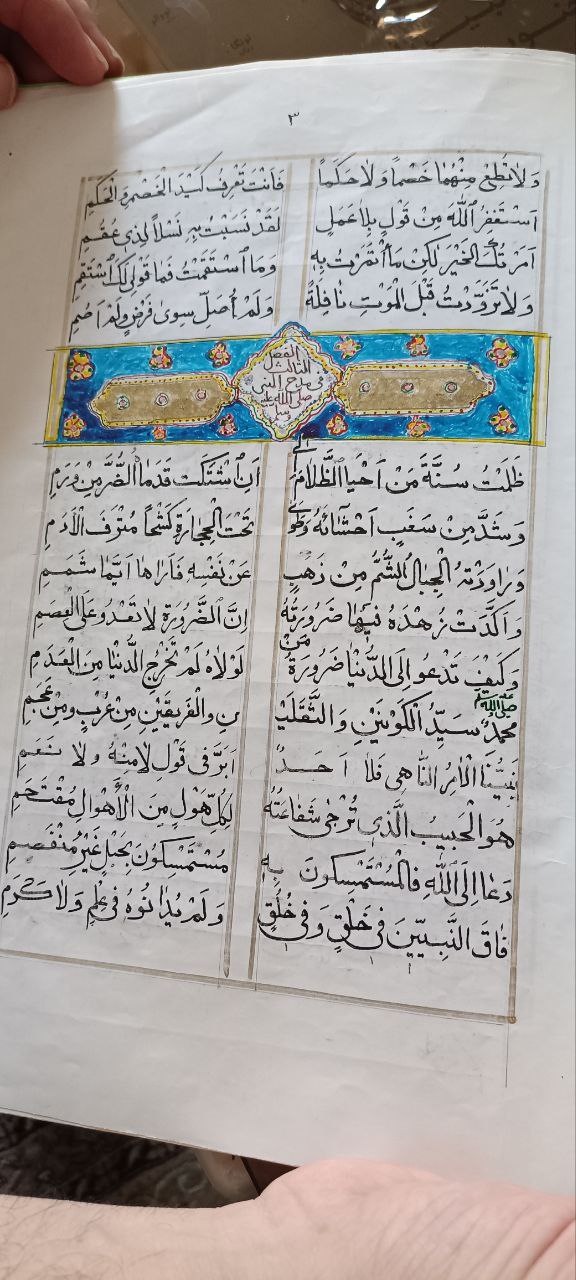 ٣
وَلَا تُطِعْ مِنْهُمَا خَصْمًا وَلَا حَكَمًا فَأَنْتَ تَعْرِفُ كَيْدَ الْخَصْمِ وَالْحَكَمِ
اَسْتَغْفِرُ اللّٰهَ مِنْ قَوْلٍ بِلَا عَمَلٍ لَقَدْ نَسَبْتُ بِهِ نَسْلًا لِذِى عُقُمِ
اَمَرْتُكَ الْخَيْرَ لٰكِنْ مَا ائْتَمَرْتُ بِهِ وَمَا اسْتَقَمْتُ فَمَا قَوْلِى لَكَ اسْتَقِمِ
وَلَا تَزَوَّدْتُ قَبْلَ الْمَوْتِ نَافِلَةً وَلَمْ أُصَلِّ سِوٰى فَرْضٍ وَلَمْ اَصُمِ
الفصل
الثالث
فى مدح النبى
صلى الله عليه
وسلم
ظَلَمْتُ سُنَّةَ مَنْ اَحْيَا الظَّلَامَ اِلٰى اَنِ اشْتَكَتْ قَدَمَاهُ الضُّرَّ مِنْ وَرَمِ
وَشَدَّ مِنْ سَغَبٍ اَحْشَائَهُ وَطَوٰى تَحْتَ الْحِجَارَةِ كَشْحًا مُتْرَفَ الْاَدَمِ
وَرَاوَدَتْهُ الْجِبَالُ الشُّمُّ مِنْ ذَهَبٍ عَنْ نَفْسِهِ فَاَرَاهَا اَيَّمَا شَمَمِ
وَاَكَّدَتْ زُهْدَهُ فِيهَا ضَرُورَتُهُ اِنَّ الضَّرُورَةَ لَا تَعْدُو عَلَى الْعِصَمِ
وَكَيْفَ تَدْعُو اِلَى الدُّنْيَا ضَرُورَةُ مَنْ لَوْلَاهُ لَمْ تَخْرُجِ الدُّنْيَا مِنَ الْعَدَمِ
مُحَمَّدٌ سَيِّدُ الْكَوْنَيْنِ وَالثَّقَلَيْـ ـنِ وَالْفَرِيقَيْنِ مِنْ عُرْبٍ وَمِنْ عَجَمِ
نَبِيُّنَا الْاٰمِرُ النَّاهِى فَلَا اَحَدٌ اَبَرَّ فِى قَوْلِ لَا مِنْهُ وَلَا نَعَمِ
هُوَ الْحَبِيبُ الَّذِى تُرْجٰى شَفَاعَتُهُ لِكُلِّ هَوْلٍ مِنَ الْأَهْوَالِ مُقْتَحَمِ
دَعَا اِلَى اللّٰهِ فَالْمُسْتَمْسِكُونَ بِهِ مُسْتَمْسِكُونَ بِحَبْلٍ غَيْرِ مُنْفَصِمِ
فَاقَ النَّبِيِّينَ فِى خَلْقٍ وَفِى خُلُقٍ وَلَمْ يُدَانُوهُ فِى عِلْمٍ وَلَا كَرَمِ